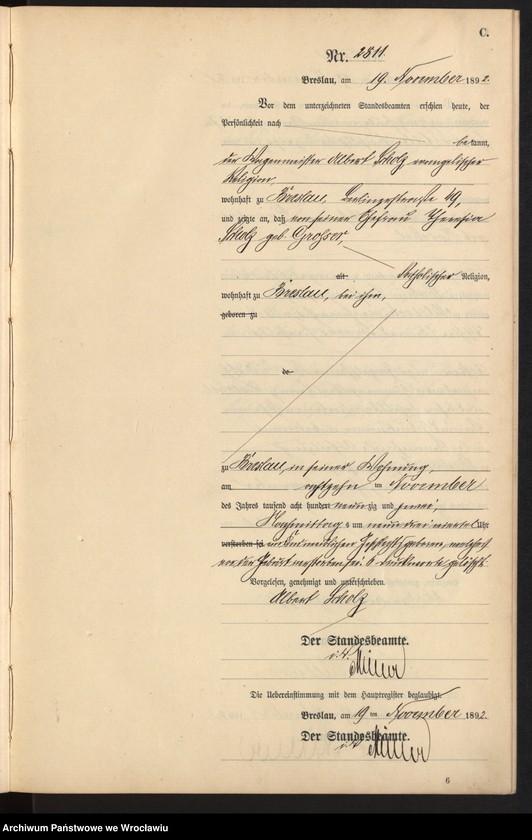 C.
Nr. 2811.
Breslau, am 19. November 1892.
Vor dem unterzeichneten Standesbeamten erschien heute, der
Persönlichkeit nach
bekannt,
der Wagenmeister Albert Scholz evangelischer
Religion,
wohnhaft zu Breslau, 49,
und zeigte an, daß von seiner Ehefrau Theresia
Scholz geb.
alt katholischer Religion,
wohnhaft zu Breslau, bei ihm,
geboren zu
de
zu Breslau, in seiner Wohnung,
am achtzehn ten November
des Jahres tausend acht hundert neun zig und zwei,
Nachmittag s um neun drei viertel Uhr
verstorben sei ein Kind männlichen Geschlechts geboren, welches
vor der Geburt verstorben sei. 6 Druckworte gelöscht.
Vorgelesen, genehmigt und unterschrieben.
Albert Scholz
Der Standesbeamte.
i. V.
Die Uebereinstimmung mit dem Hauptregister beglaubigt.
Breslau, am 19 ten November 1892.
Der Standesbeamte.
i. V.
6
Archiwum Państwowe we Wrocławiu